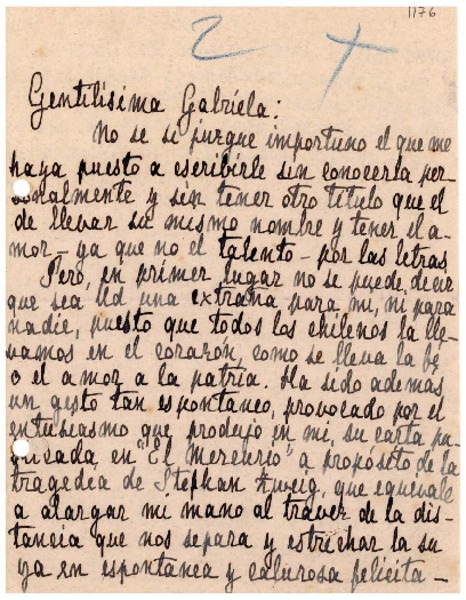 1176
2 X
Gentilísima Gabriela:
No se si juzgue importuno el que me
haya puesto a escribirle sin conocerla per-
sonalmente y sin tener otro titulo que el
de llevar su mismo nombre y tener el a-
mor - ya que no el talento - por las letras
Pero, en primer lugar no se puede, decir
que sea Ud una extraña para mi, ni para
nadie, puesto que todos los chilenos la lle-
vamos en el corazón, como se lleva la fe
o el amor a la patria. Ha sido además
un gesto tan espontaneo, provocado por el
entusiasmo que produjo en mi, su carta pu-
blicada, en "El Mercurio" a propósito de la
tragedea de Stephan Zweig, que equivale
a alargar mi mano al traver de la dis-
tancia que nos separa y estrechar la su
ya en espontanea y calurosa felicita-